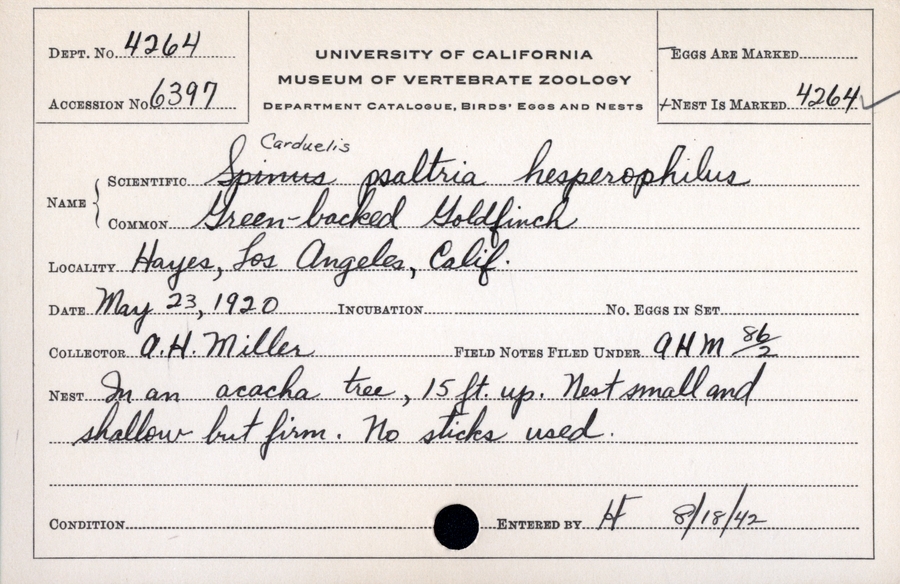 DEPT. No. 4264
ACCESSION No. 6397
UNIVERSITY OF CALIFORNIA
MUSEUM OF VERTEBRATE ZOOLOGY
DEPARTMENT CATALOGUE, BIRDS' EGGS AND NESTS
EGGS ARE MARKED
+NEST IS MARKED 4264 ✓
Carduelis
NAME { SCIENTIFIC Spinus psaltria hesperophilus
COMMON Green-backed Goldfinch
LOCALITY Hayes, Los Angeles, Calif.
DATE May 23, 1920 INCUBATION NO. EGGS IN SET
COLLECTOR A.H. Miller FIELD NOTES FILED UNDER AHM 86/2
NEST In an acacha tree, 15 ft. up. Nest small and
shallow but firm. No sticks used.
CONDITION ENTERED BY H 8/18/42